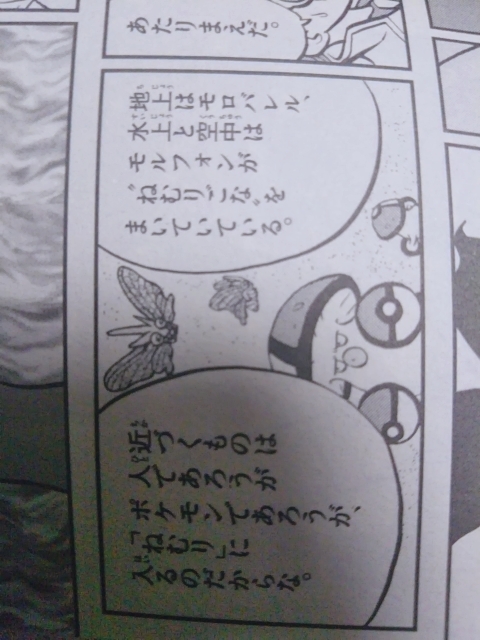 あたりまえだ。
地上はモロバレル、
水上と空中は
モルフォンが
“ねむりごな”を
まいていている。
近づくものは
人であろうが
ポケモンであろうが、
「ねむり」に
入るのだからな。